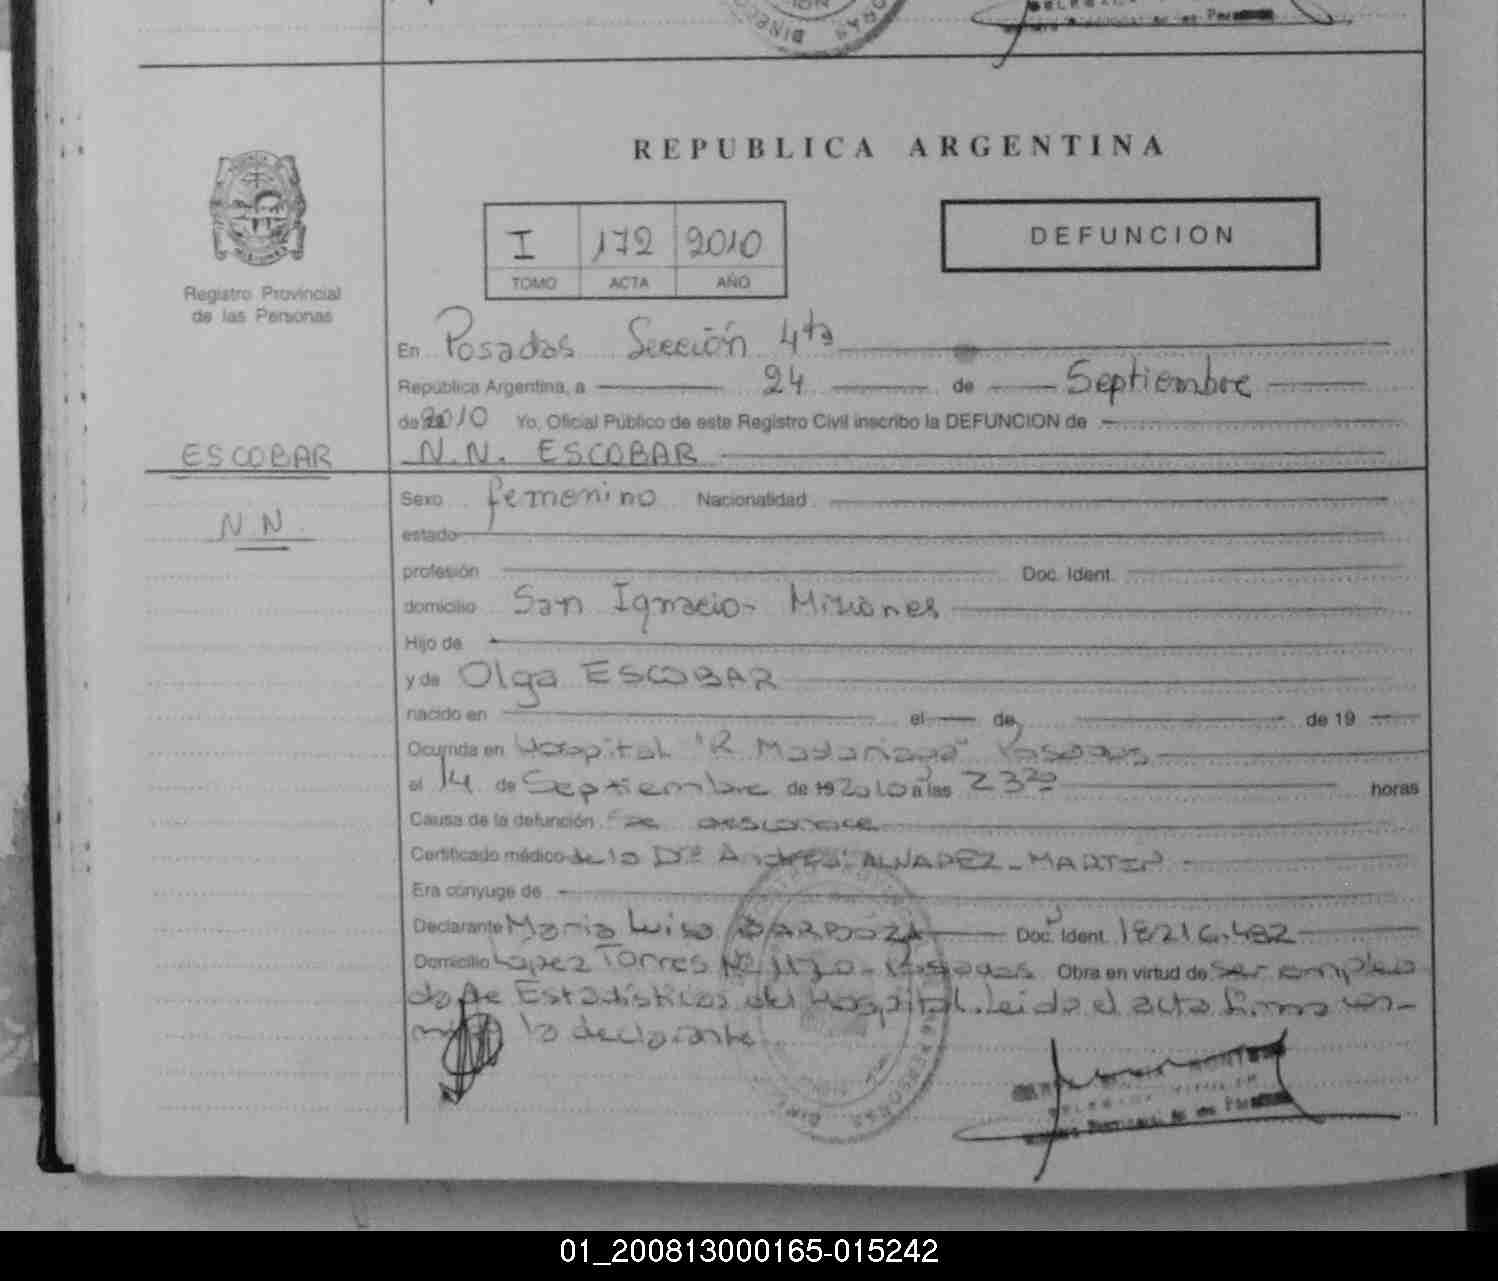 REPUBLICA ARGENTINA
Registro Provincial
de las Personas
I 172 2010
TOMO ACTA AÑO
DEFUNCION
En Posadas Sección 4ta
República Argentina, a 24 de Septiembre
de 2010 Yo, Oficial Público de este Registro Civil inscribo la DEFUNCION de
ESCOBAR
N.N. ESCOBAR
N N
Sexo femenino Nacionalidad
estado
profesión Doc. Ident.
domicilio San Ignacio- Misiones
Hijo de
y de Olga ESCOBAR
nacido en el de de 19
Ocurrida en Hospital "R Madariaga" Posadas
el 14 de Septiembre de 19 2010 a las 23 20 horas
Causa de la defunción
Certificado médico de la Dra Andrea ALVAREZ-MARTIN
Era cónyuge de
Declarante Maria Luisa BARBOZA Doc. Ident. 18216.482
Domicilio Lopez Torres Nº Posadas Obra en virtud de ser emplea
da de Estadisticas del Hospital. Leida el acta firma con-
migo la declarante
01_200813000165-015242